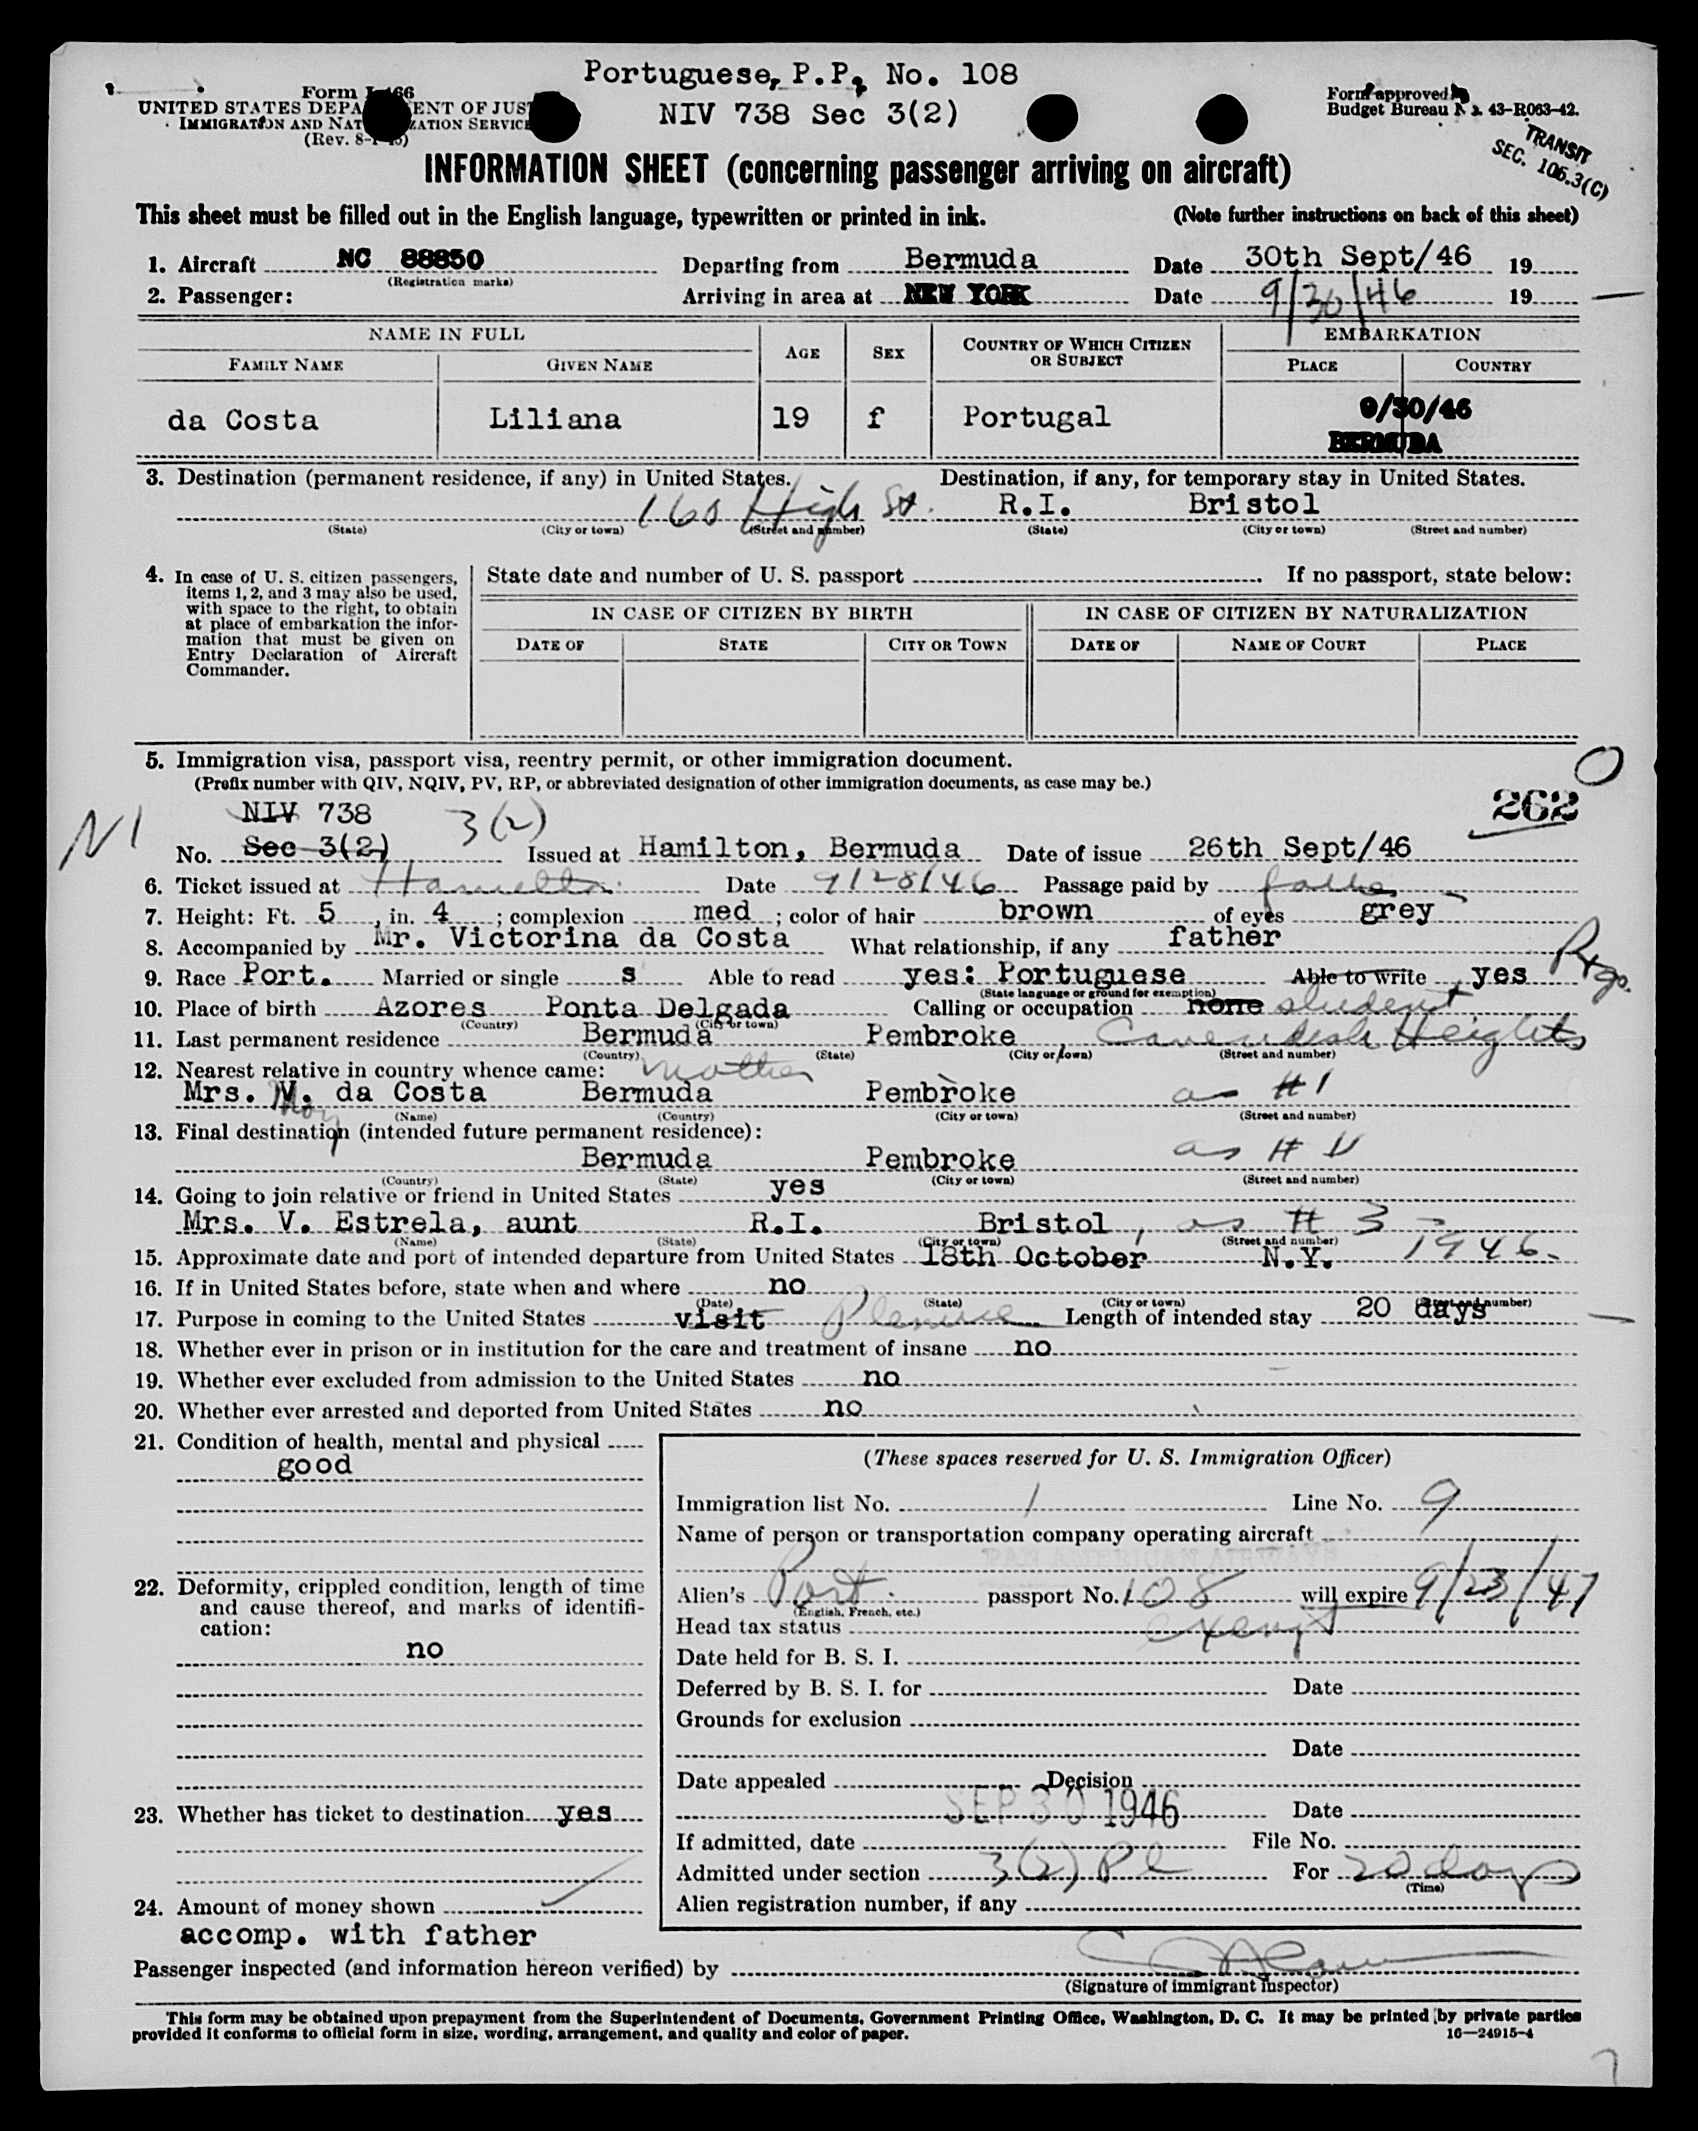 Portuguese, P.P. No. 108
Form I-466
UNITED STATES DEPARTMENT OF JUSTICE
NIV 738 Sec 3(2)
Form approved
Budget Bureau No. 43-R063-42.
IMMIGRATION AND NATURALIZATION SERVICE
(Rev. 8-1-45)
TRANSIT
SEC. 106.3(C)
INFORMATION SHEET (concerning passenger arriving on aircraft)
This sheet must be filled out in the English language, typewritten or printed in ink. (Note further instructions on back of this sheet)
1. Aircraft NC 88850 Departing from Bermuda Date 30th Sept/46 19
(Registration marks)
2. Passenger: Arriving in area at NEW YORK Date 9/30/46 19
NAME IN FULL AGE SEX COUNTRY OF WHICH CITIZEN OR SUBJECT EMBARKATION
FAMILY NAME GIVEN NAME PLACE COUNTRY
da Costa Liliana 19 f Portugal 9/30/46
BERMUDA
3. Destination (permanent residence, if any) in United States. Destination, if any, for temporary stay in United States.
160 High St. R.I. Bristol
(State) (City or town) (Street and number) (State) (City or town) (Street and number)
4. In case of U. S. citizen passengers, items 1, 2, and 3 may also be used, with space to the right, to obtain at place of embarkation the information that must be given on Entry Declaration of Aircraft Commander.
State date and number of U. S. passport If no passport, state below:
IN CASE OF CITIZEN BY BIRTH IN CASE OF CITIZEN BY NATURALIZATION
DATE OF STATE CITY OR TOWN DATE OF NAME OF COURT PLACE
5. Immigration visa, passport visa, reentry permit, or other immigration document.
(Prefix number with QIV, NQIV, PV, RP, or abbreviated designation of other immigration documents, as case may be.)
262
NIV 738
NI 3(2)
No. Sec 3(2) Issued at Hamilton, Bermuda Date of issue 26th Sept/46
6. Ticket issued at Hamilton Date 9/28/46 Passage paid by father
7. Height: Ft. 5, in. 4; complexion med; color of hair brown of eyes grey
8. Accompanied by Mr. Victorina da Costa What relationship, if any father
9. Race Port. Married or single s Able to read yes: Portuguese Able to write yes
(State language or ground for exemption)
10. Place of birth Azores Ponta Delgada Calling or occupation none student
(Country) (City or town)
11. Last permanent residence Bermuda Pembroke, Cavendish Heights
(Country) (State) (City or town) (Street and number)
12. Nearest relative in country whence came: mother
Mrs. M. da Costa Bermuda Pembroke as #1
(Name) (Country) (City or town) (Street and number)
13. Final destination (intended future permanent residence):
Bermuda Pembroke as # 11
(Country) (State) (City or town) (Street and number)
14. Going to join relative or friend in United States yes
Mrs. V. Estrela, aunt R.I. Bristol, as # 3
(Name) (State) (City or town) (Street and number)
15. Approximate date and port of intended departure from United States 18th October N.Y. 1946
16. If in United States before, state when and where no
(Date) (State) (City or town) (Street and number)
17. Purpose in coming to the United States visit Pleasure Length of intended stay 20 days
18. Whether ever in prison or in institution for the care and treatment of insane no
19. Whether ever excluded from admission to the United States no
20. Whether ever arrested and deported from United States no
21. Condition of health, mental and physical
good
22. Deformity, crippled condition, length of time and cause thereof, and marks of identification:
no
23. Whether has ticket to destination yes
24. Amount of money shown
accomp. with father
(These spaces reserved for U. S. Immigration Officer)
Immigration list No. 1 Line No. 9
Name of person or transportation company operating aircraft
PAN AMERICAN AIRWAYS
Alien's Port. passport No. 108 will expire 9/23/47
(English, French, etc.)
Head tax status exempt
Date held for B. S. I.
Deferred by B. S. I. for Date
Grounds for exclusion
Date
Date appealed Decision
SEP 30 1946 Date
If admitted, date File No.
Admitted under section 3(2) Pl For 20 days
(Time)
Alien registration number, if any
Passenger inspected (and information hereon verified) by
(Signature of immigrant inspector)
This form may be obtained upon prepayment from the Superintendent of Documents, Government Printing Office, Washington, D. C. It may be printed by private parties
provided it conforms to official form in size, wording, arrangement, and quality and color of paper. 16—24915-4